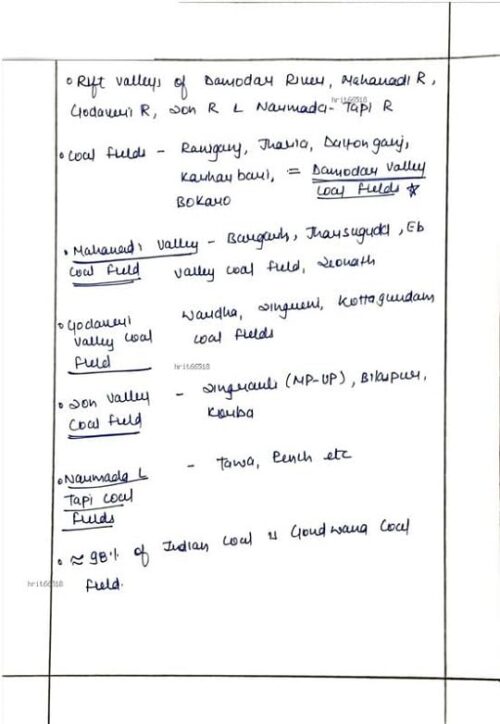 • Rift Valleys of Damodar River, Mahanadi R,
Godaveri R, Son R & Narmada-Tapi R
hrit66518
• Coal Fields - Raniganj, Jharia, Daltonganj,
Karharbari, = Damodar Valley
Bokaro Coal Fields ☆
• Mahanadi Valley - Bargarh, Jharsuguda, Eb
Coal Field valley coal field, Seonath
• Godaveri Wardha, Singreni, Kottagundam
Valley Coal Coal Fields
Field
hrit66518
• Son Valley - Singrauli (MP-UP), Birspur,
Coal Field Korba
• Narmada & - Tawa, Pench etc
Tapi Coal
Fields
• ≈ 98% of Indian Coal is Gondwana Coal
hrit66518
Field.